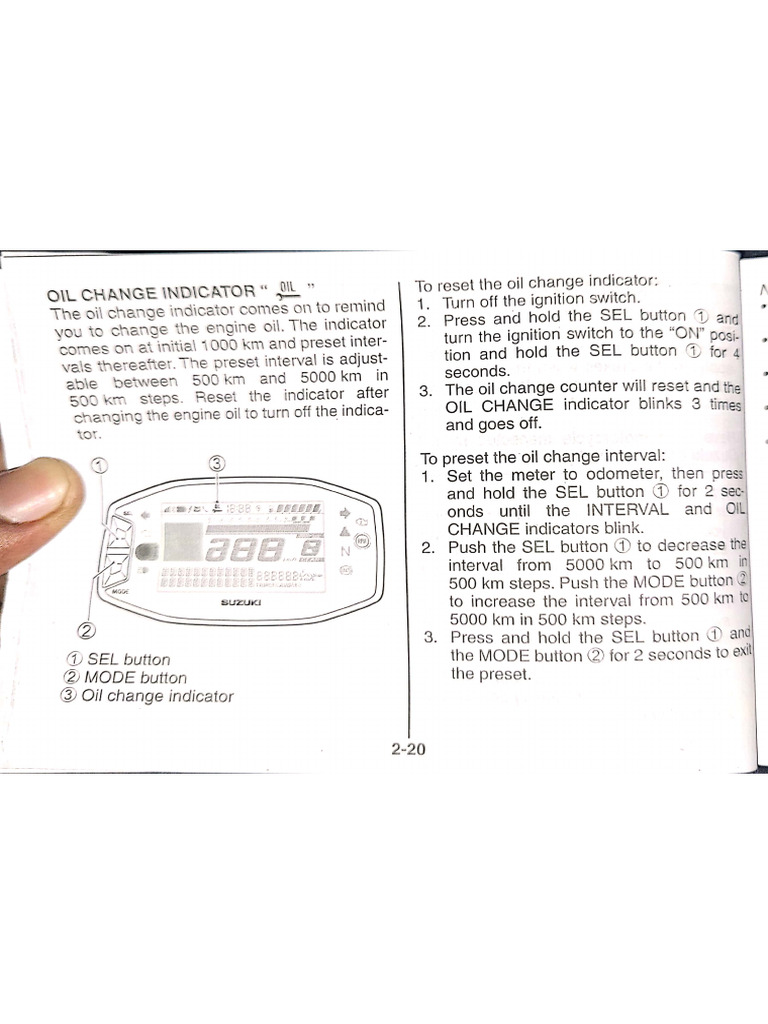 OIL CHANGE INDICATOR “ OIL ”
The oil change indicator comes on to remind
you to change the engine oil. The indicator
comes on at initial 1000 km and preset inter-
vals thereafter. The preset interval is adjust-
able between 500 km and 5000 km in
500 km steps. Reset the indicator after
changing the engine oil to turn off the indica-
tor.
① ③
MODE
N
SUZUKI
②
① SEL button
② MODE button
③ Oil change indicator
To reset the oil change indicator:
1. Turn off the ignition switch.
2. Press and hold the SEL button ① and
turn the ignition switch to the “ON” posi-
tion and hold the SEL button ① for 4
seconds.
3. The oil change counter will reset and the
OIL CHANGE indicator blinks 3 times
and goes off.
To preset the oil change interval:
1. Set the meter to odometer, then press
and hold the SEL button ① for 2 sec-
onds until the INTERVAL and OIL
CHANGE indicators blink.
2. Push the SEL button ① to decrease the
interval from 5000 km to 500 km in
500 km steps. Push the MODE button ②
to increase the interval from 500 km to
5000 km in 500 km steps.
3. Press and hold the SEL button ① and
the MODE button ② for 2 seconds to exit
the preset.
2-20